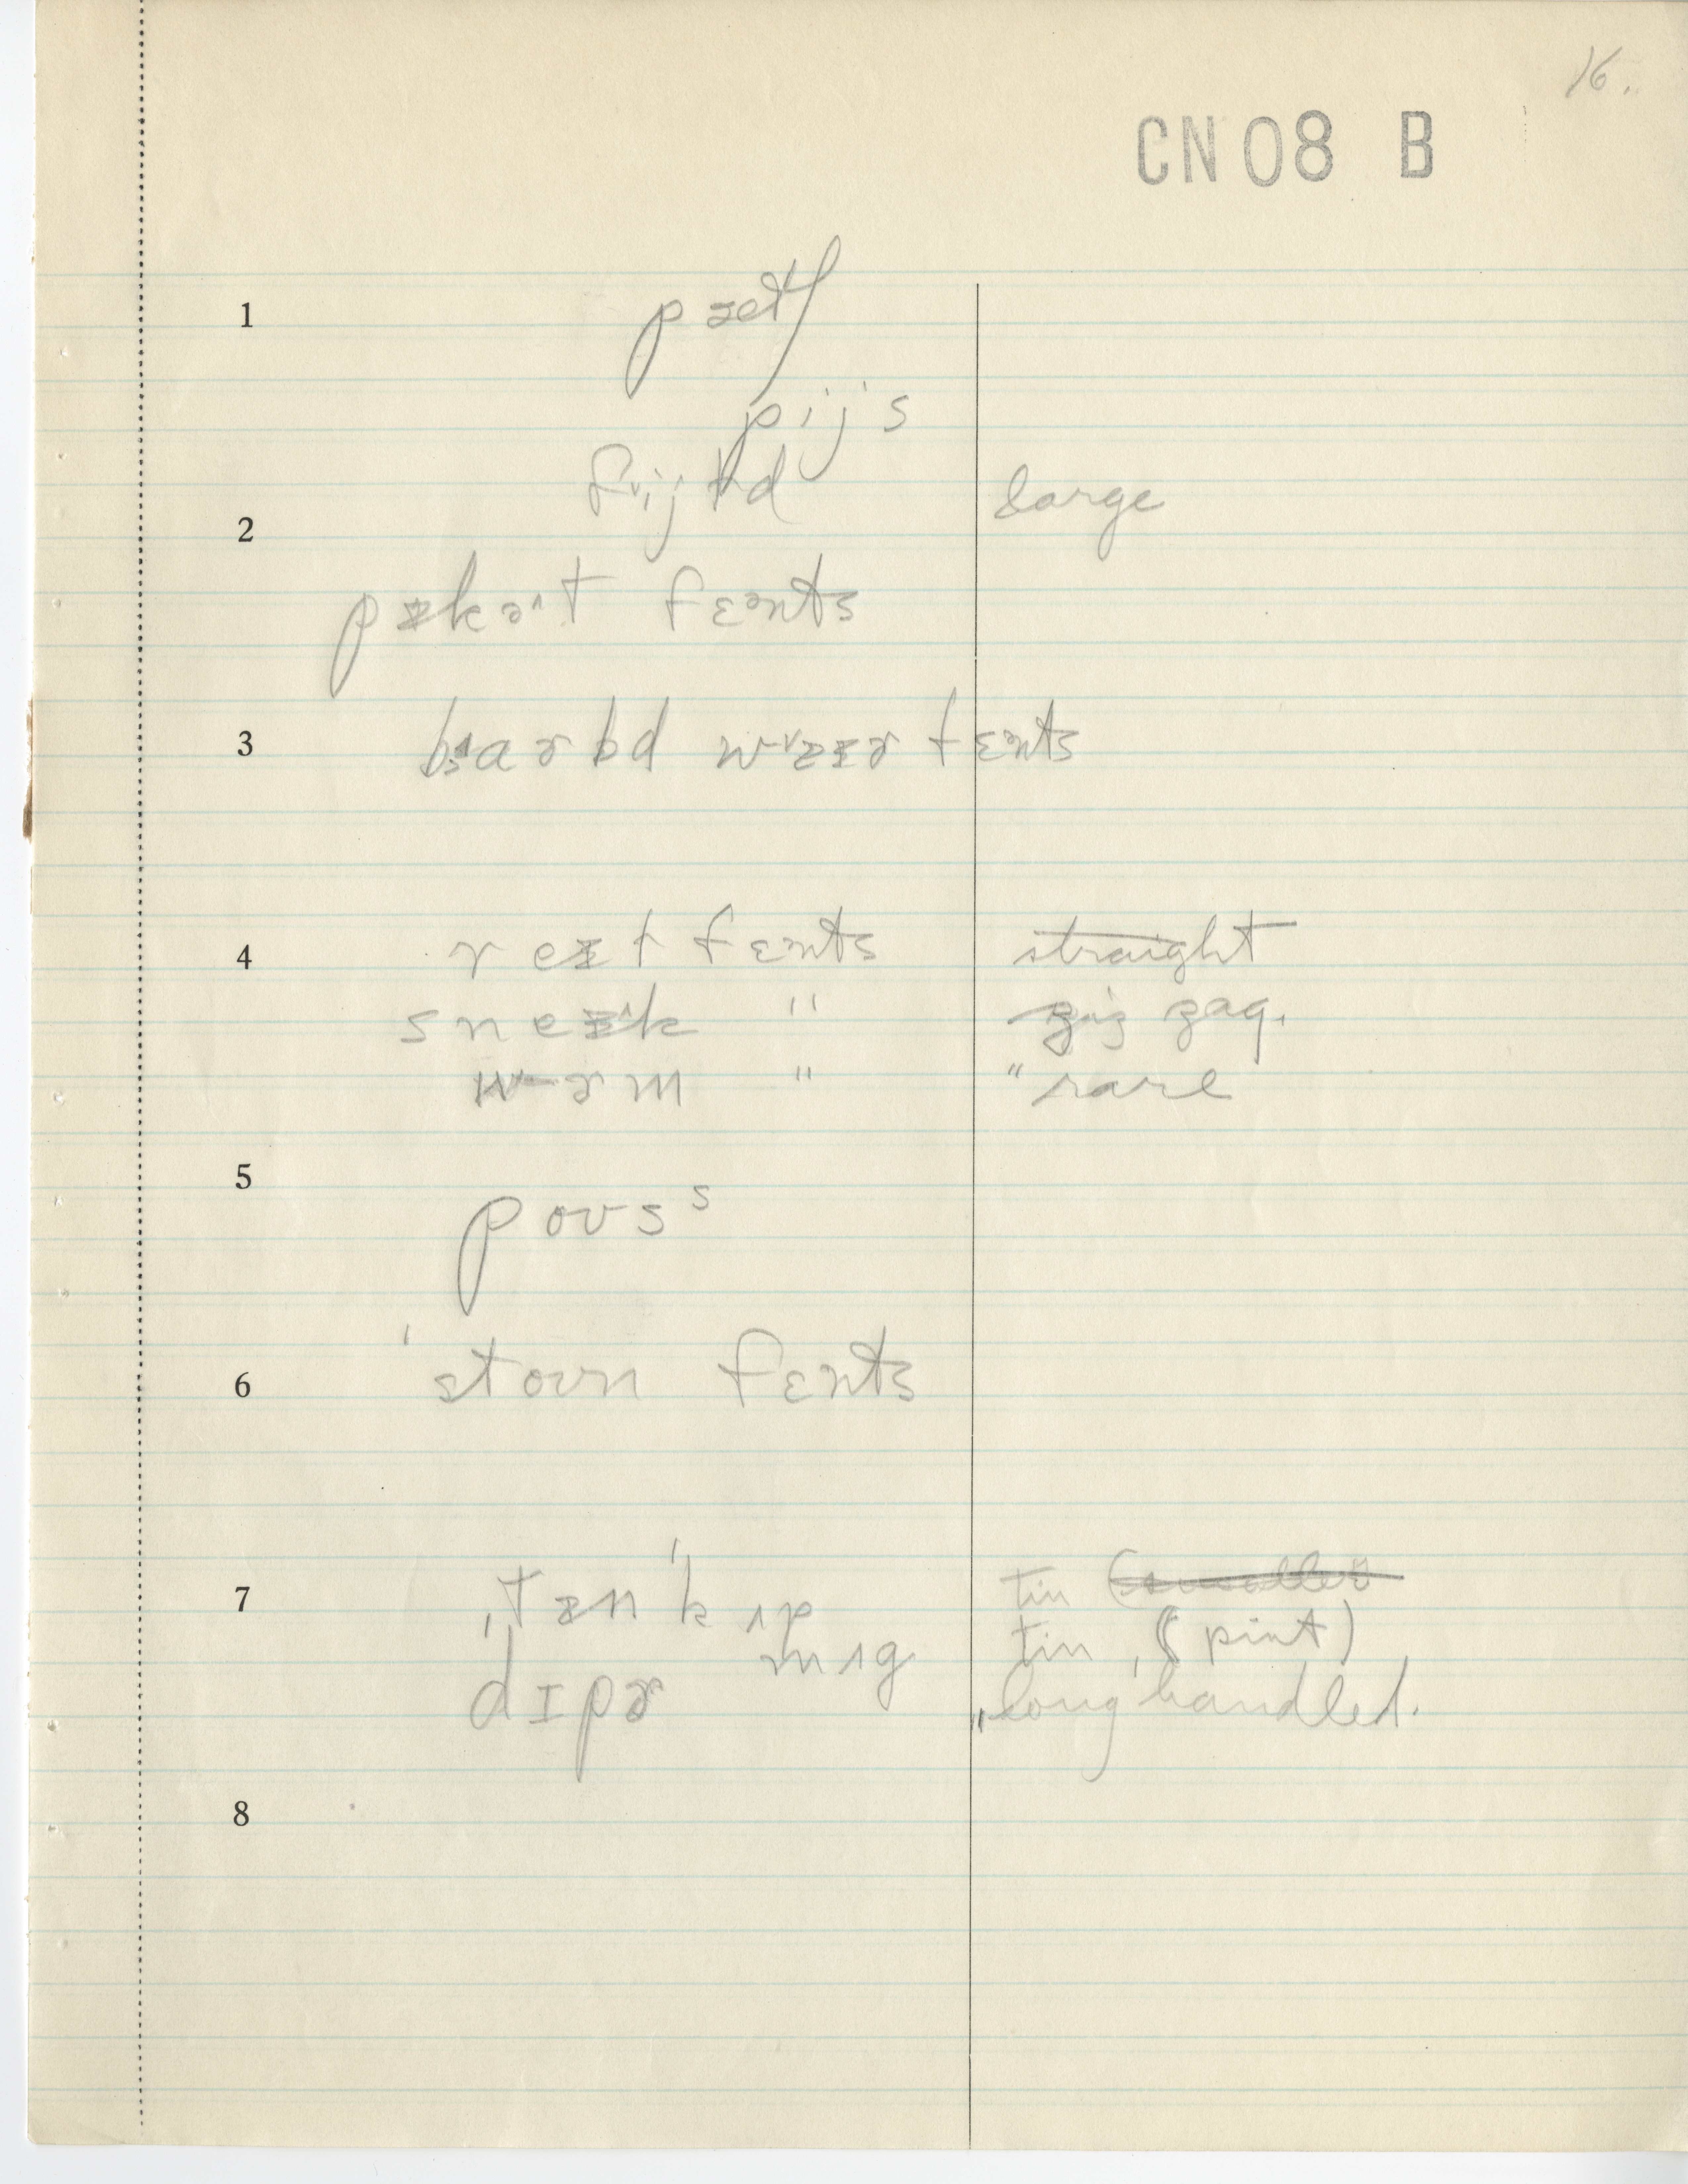 16.
CN08 B
1
pætʃ
pij s
2 fijld large
pɪkɚt fɛnts
3 barbd waɪɚ fɛnts
4 reɪl fɛnts straight
sneɪk " zig zag.
wɚm " " rare
5 pous s
6 ˈstoun fɛnts
7 ˌtɪn ˈkʌp tin
mʌg tin, (pint)
dɪpɚ " long handled.
8